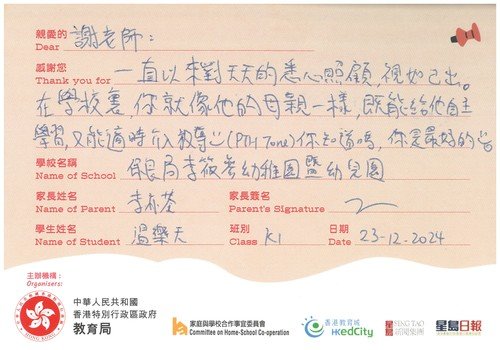 親愛的
Dear 謝老師：
感謝您
Thank you for 一直以來對天天的悉心照顧，視如己出。
在學校裏，你就像他的母親一樣，既能給他自主
學習，又能適時介入教導︰(PTU Tone)你知道嗎，你是最好的
學校名稱
Name of School 保良局李筱參幼稚園暨幼兒園
家長姓名
Name of Parent 李
家長簽名
Parent's Signature
學生姓名
Name of Student 溫樂天
班別
Class K1
日期
Date 23-12-2024
主辦機構：
Organisers:
中華人民共和國
香港特別行政區政府
教育局
HONG KONG
家庭與學校合作事宜委員會
Committee on Home-School Co-operation
香港教育城
HKedCity
星島 SING TAO
新聞集團
星島日報